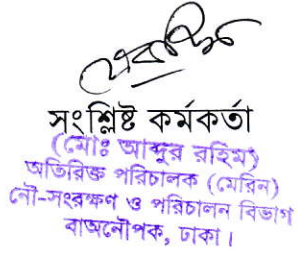 সংশ্লিষ্ট কর্মকর্তা
(মোঃ আব্দুর রহিম)
অতিরিক্ত পরিচালক (মেরিন)
নৌ-সংরক্ষণ ও পরিচালন বিভাগ
বাঅনৌপক, ঢাকা।